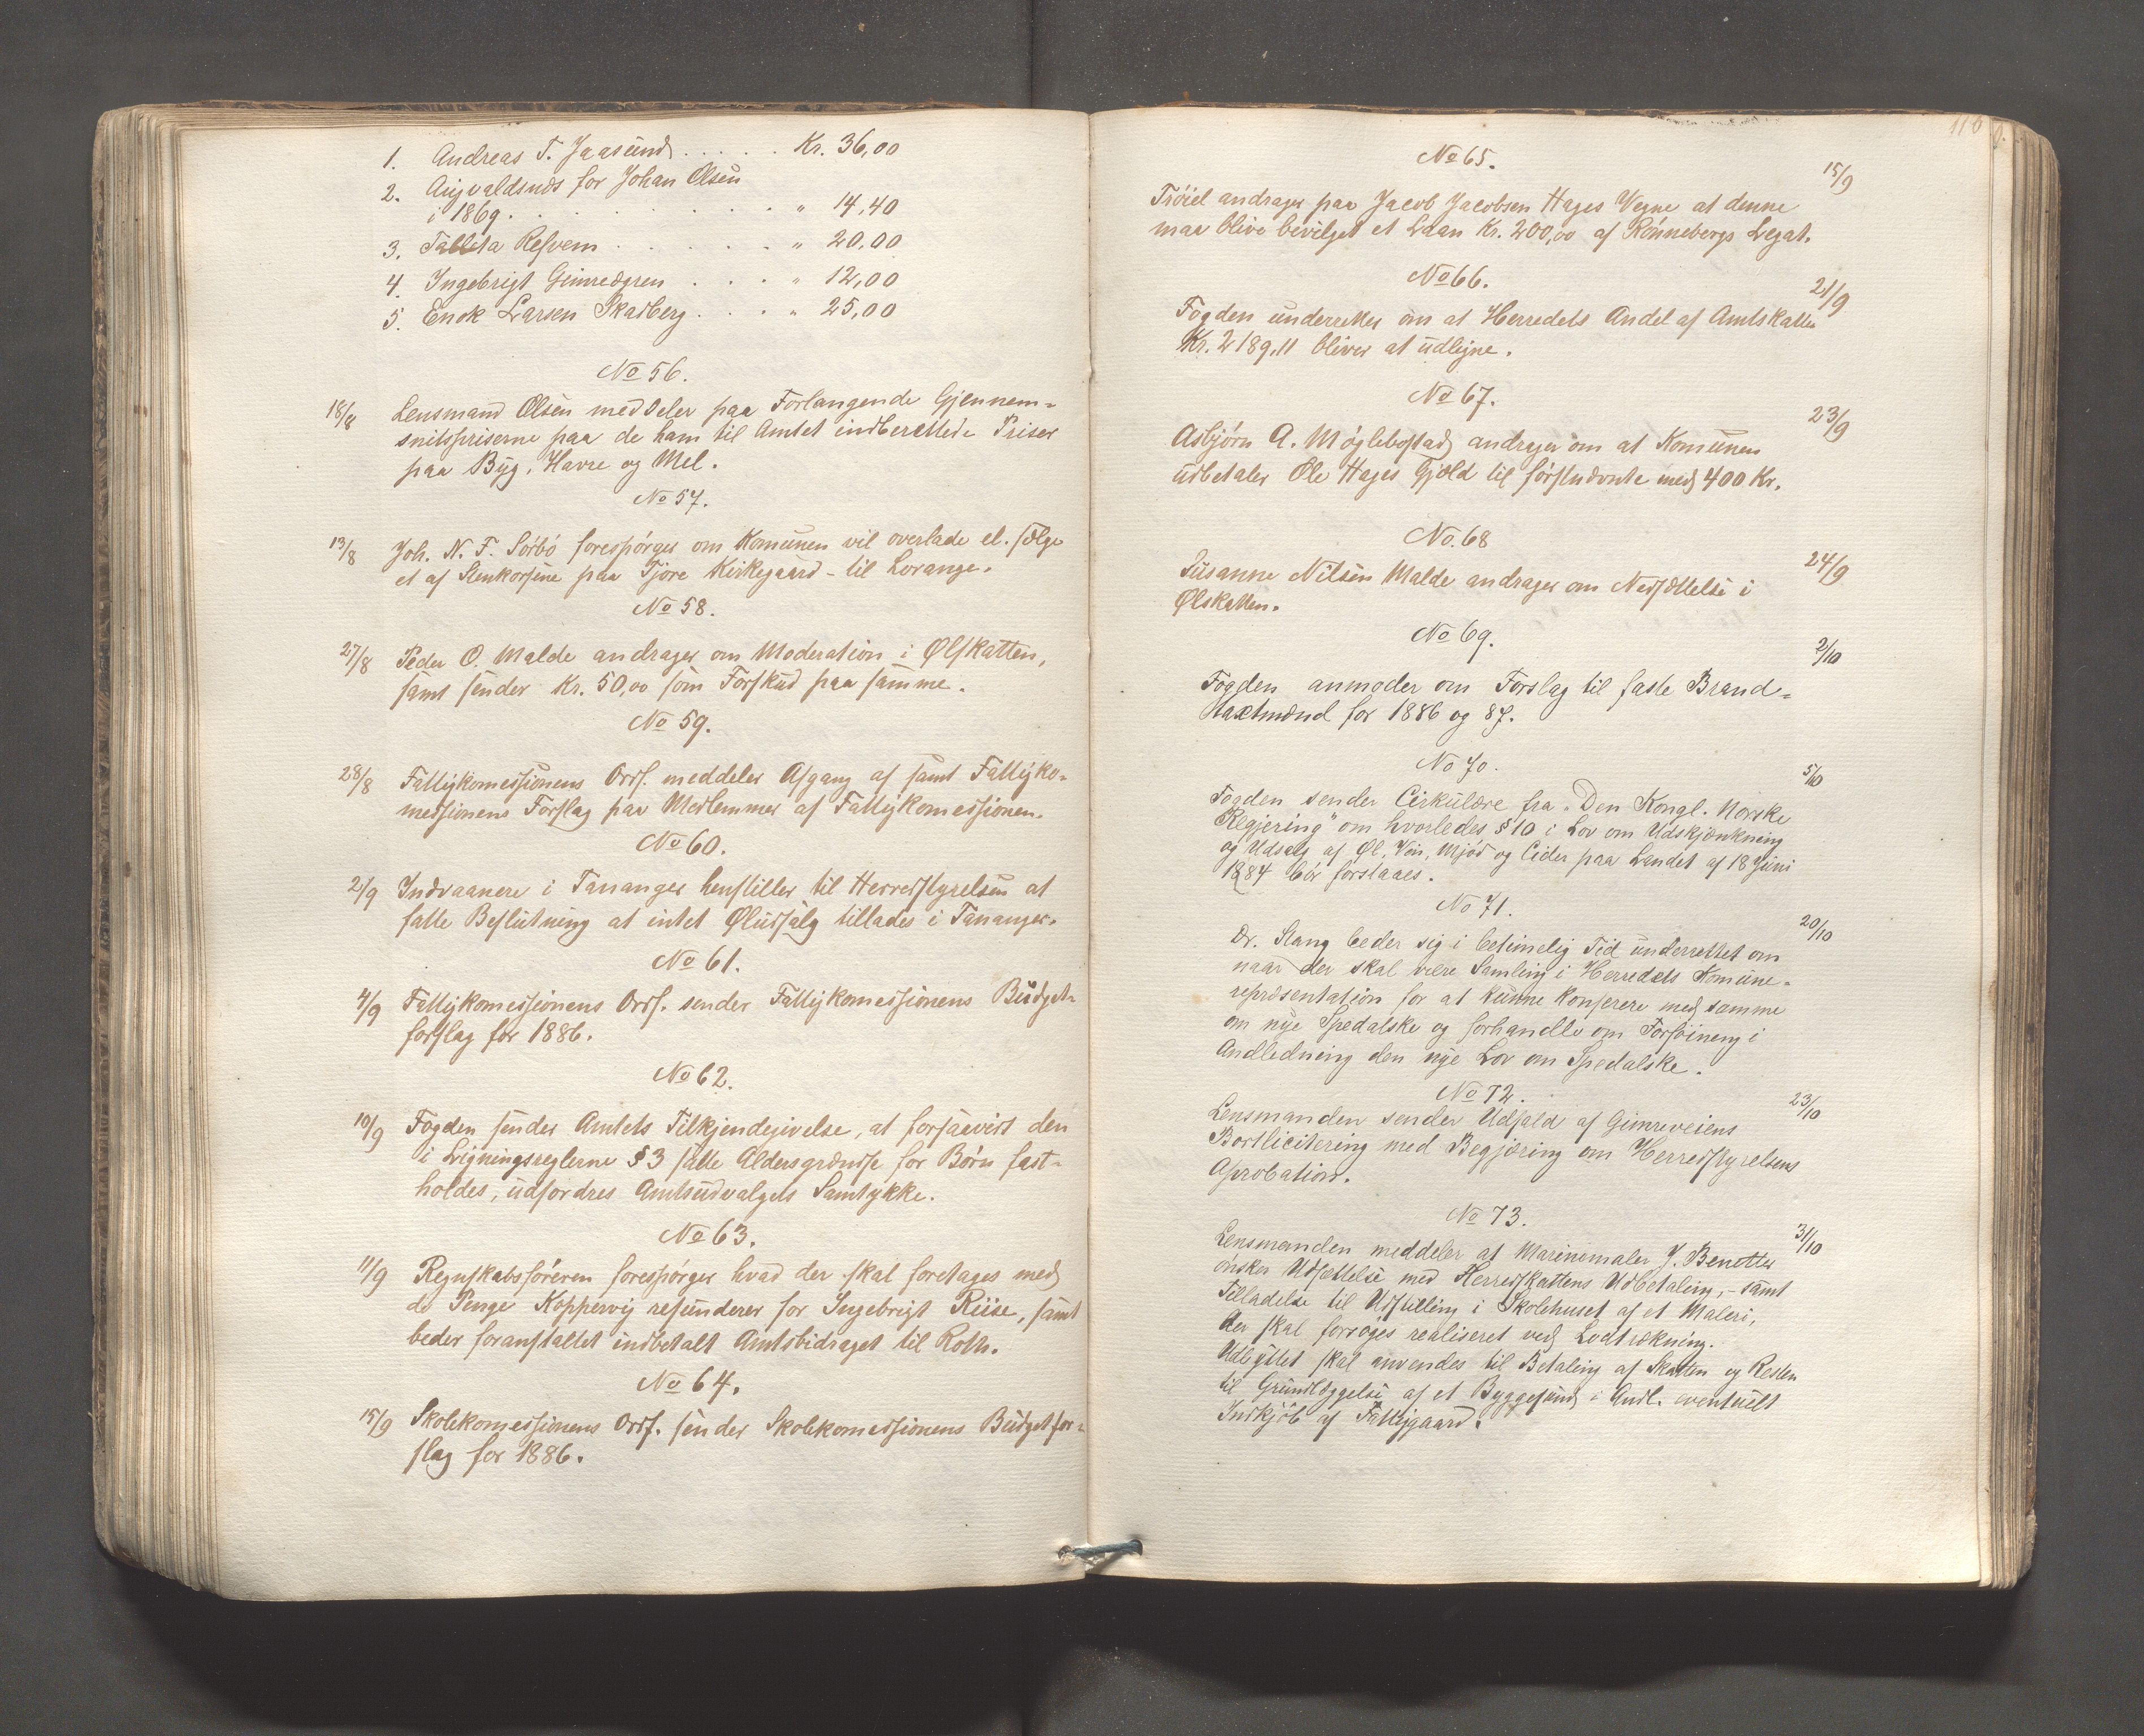 1. Andreas T. Jaasund . . . . . Kr. 36,00
2. for Johan Olsen
i 1869 . . . . . . . . . . " 14,40
3. Tallita Refvem . . . . . . " 20,00
4. Ingebrigt Gimregren . . . . " 12,00
5. Enok Larsen Skadberg . . . . " 25,00
No 56.
18/8 Lensmand Olsen meddeler paa Forlangende Gjennem-
snitspriserne paa de ham til Amtet indberettede Priser
paa Byg, Havre og Mel.
No 57.
13/8 Joh. N. F. Sørbø forespørger om Komunen vil overlade el. sælge
et af Stenkorsene paa Tjore Kirkegaard - til Lorange.
No 58.
27/8 Peder O. Malde andrager om Moderation i Ølskatten,
samt sender Kr. 50,00 som Forskud paa samme.
No 59.
28/8 Fattigkomessionens Ordf. meddeler Afgang af samt Fattigko-
messionens Forslag paa Medlemmer af Fattigkomessionen.
No 60.
2/9 Indvaanere i Tananger henstiller til Herredstyrelsen at
fatte Beslutning at intet Øludsalg tillades i Tananger.
No 61.
4/9 Fattigkomessionens Ordf. sender Fattigkomessionens Budget-
forslag for 1886.
No 62.
10/9 Fogden sender Amtets Tilkjendegivelse, at forsaavidt den
i Ligningsreglerne § 3 satte Aldersgrændse for Børn fast-
holdes, udfordres Amtsudvalgets Samtykke.
No 63.
11/9 Regnskabsføreren forespørger hvad der skal foretages med
de Penge Koppervig refunderer for Ingebrigt Riise, samt
beder foranstaltet indbetalt Amtsbidraget til Roth.
No 64.
15/9 Skolekomessionens Ordf. sender Skolekomessionens Budgetfor-
slag for 1886.
110
No 65.
15/9
Trøiel andrager paa Jacob Jacobsen Hages Vegne at denne
maa blive bevilget et Laan Kr. 200,00 af Rønnebergs Legat.
No 66.
21/9
Fogden underretter om at Herredets Andel af Amtskatten
Kr. 2189,11 bliver at udligne.
No 67.
23/9
Asbjørn A. Møglebostad andrager om at Komunen
udbetaler Ole Hages Gjæld til førstnævnte med 400 Kr.
No. 68
24/9
Susanne Nilsen Malde andrager om Nedsættelse i
Ølskatten.
No 69.
2/10
Fogden anmoder om Forslag til faste Brand-
taxtmænd for 1886 og 87.
No 70.
5/10
Fogden sender Cirkulære fra "Den Kongl. Norske
Regjering" om hvorledes § 10 i Lov om Udskjænkning
og Udsalg af Øl, Vin, Mjød og Cider paa Landet af 18 Juni
1884 bør forstaaes.
No 71.
20/10
Dr. Stang beder sig i betimelig Tid underrettet om
naar der skal være Samling i Herredets Komune-
repræsentation for at kunne konferere med samme
om nye Spedalske og forhandle om Forføining i
Andledning den nye Lov om Spedalske.
No 72.
23/10
Lensmanden sender Udfald af Gimreveiens
Bortlicitering med Begjæring om Herredstyrelsens
Aprobation.
No 73.
31/10
Lensmanden meddeler at Marinemaler J. Benetter
ønsker Udsættelse med Herredskattens Udbetaling, - samt
Tilladelse til Udstilling i Skolehuset af et Maleri,
der skal forsøges realiseret ved Lodtrækning.
Udbyttet skal anvendes til Betaling af Skatten og Resten
til Grundlæggelse af et Byggefund i Andl. eventuelt
Indkjøb af Fattiggaard.